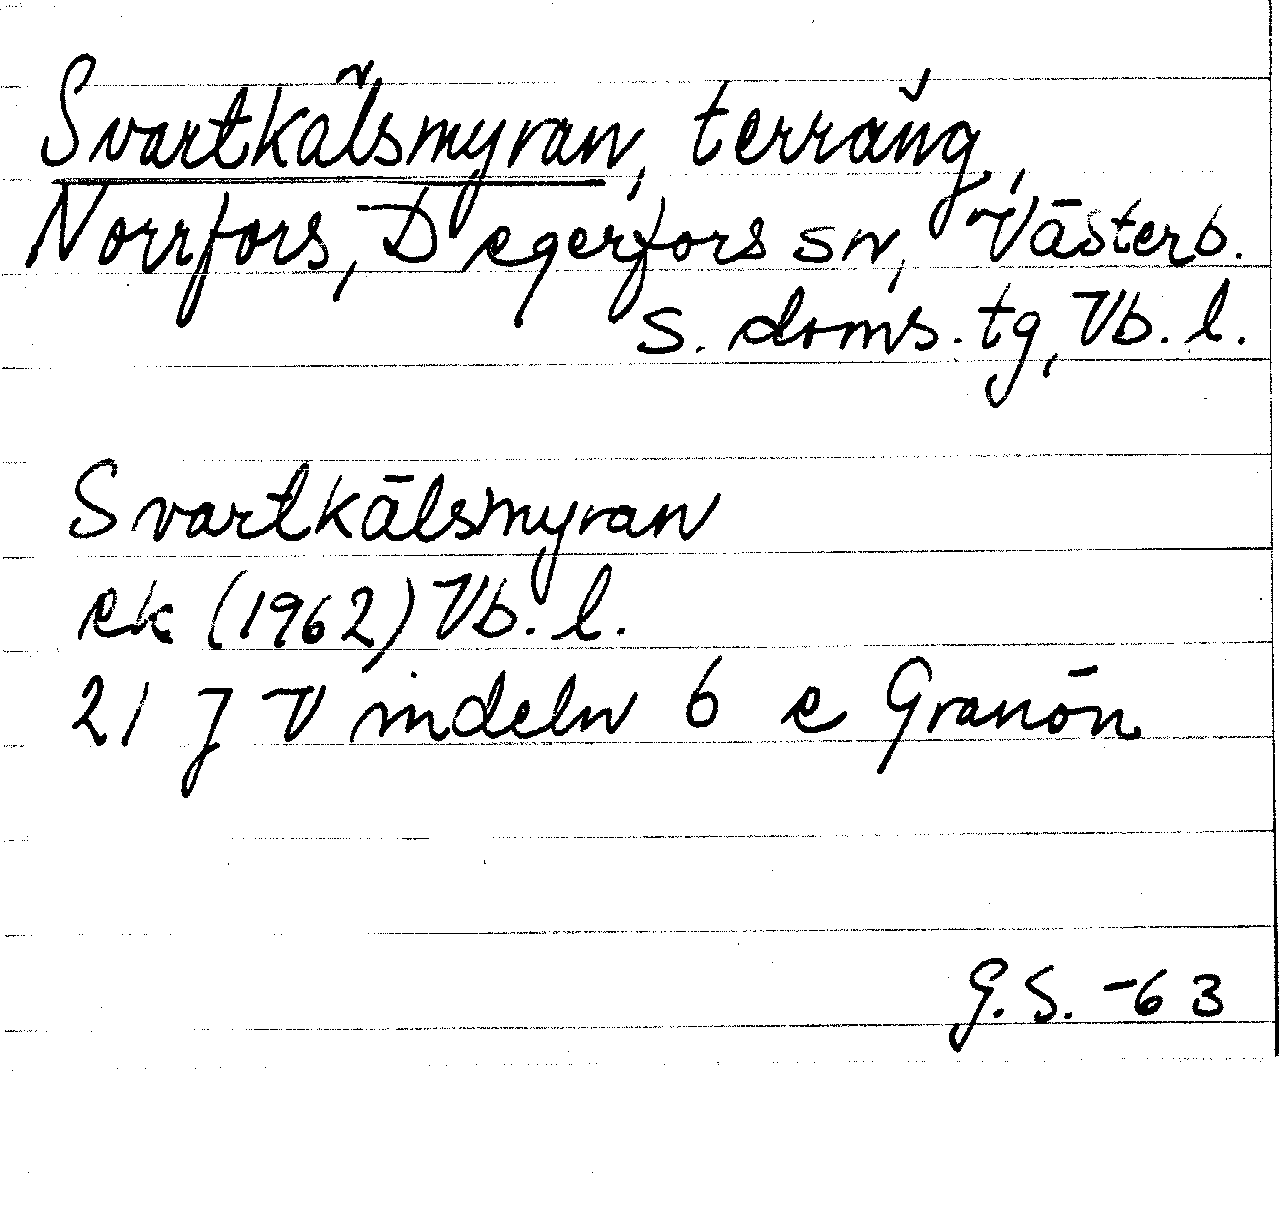 Svartkälsmyran, terräng,
Norrfors, Degerfors sn, Västerb.
s. doms. tg, Vb. l.
Svartkälsmyran
ek (1962) Vb. l.
21 J Vindeln 6 e Granön
G.S. -63